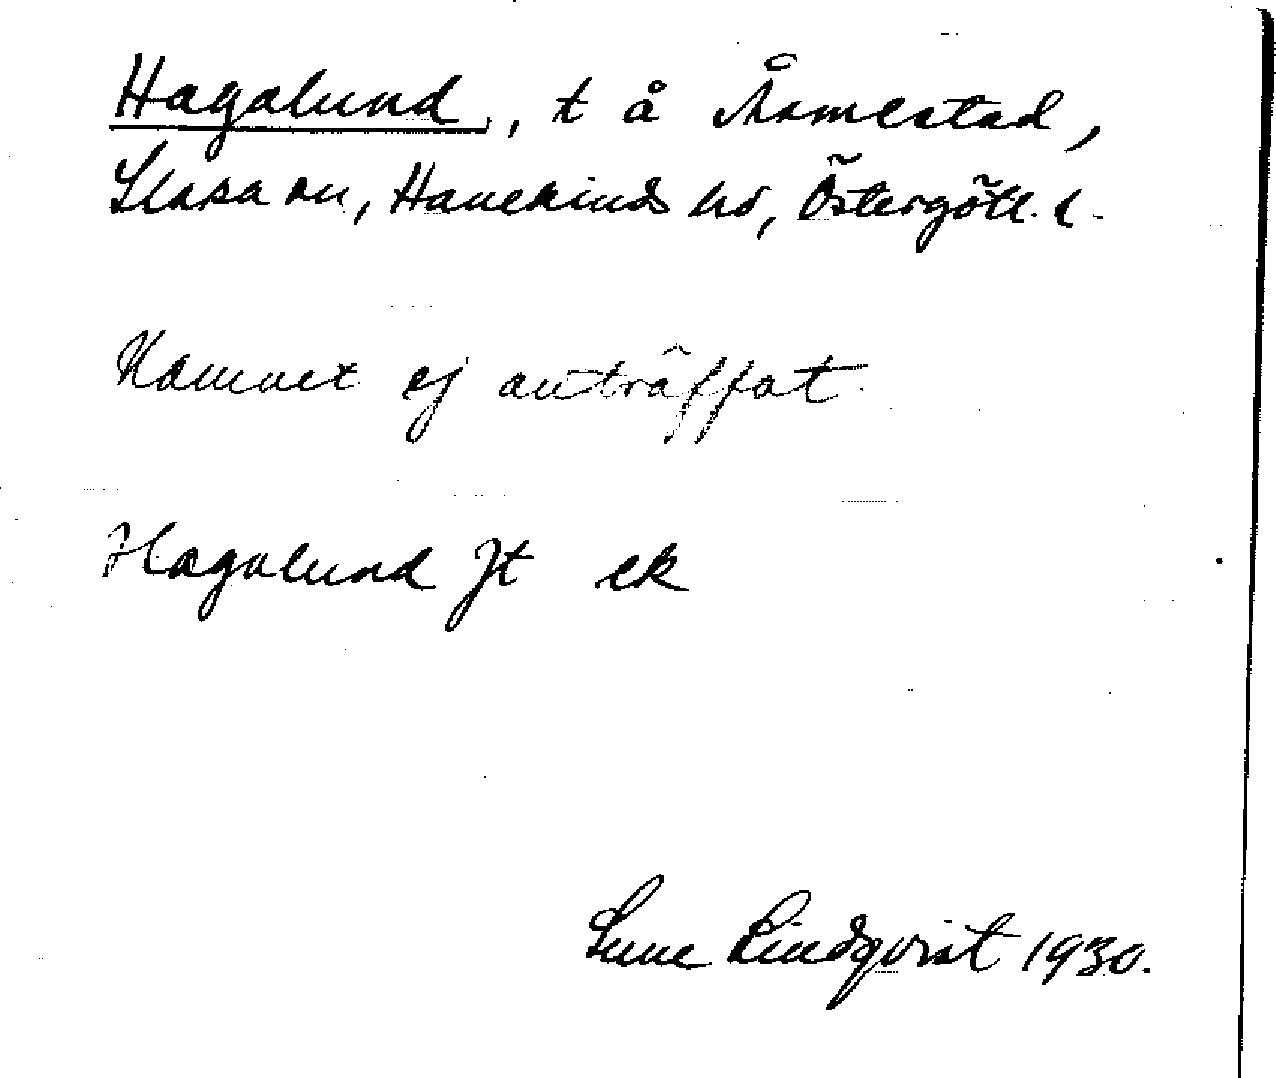 Hagalund, t å Åsmestad,
Slaka sn, Hanekinds hd, Östergötl. l.
Namnet ej anträffat.
Hagalund Jt ek
Sune Lindqvist 1930.